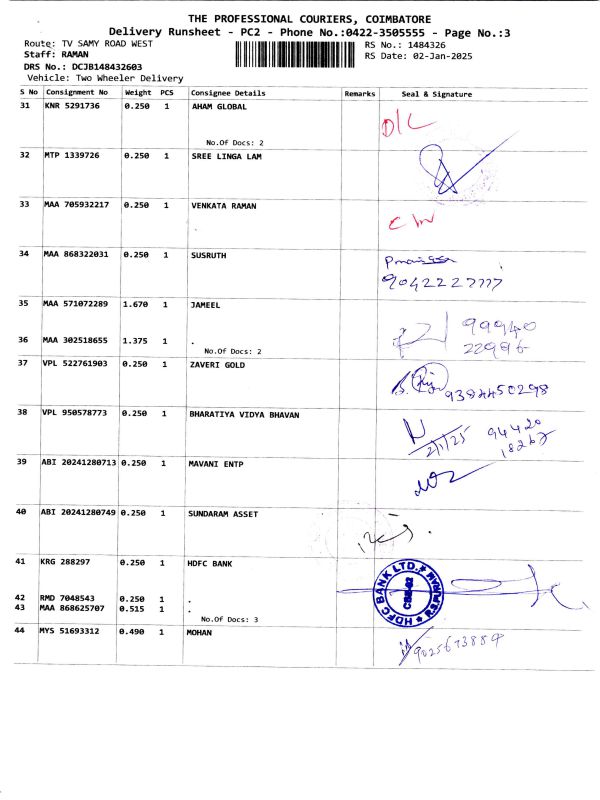 THE PROFESSIONAL COURIERS, COIMBATORE
Delivery Runsheet - PC2 - Phone No.:0422-3505555 - Page No.:3
Route: TV SAMY ROAD WEST RS No.: 1484326
Staff: RAMAN RS Date: 02-Jan-2025
DRS No.: DCJB148432603
Vehicle: Two Wheeler Delivery
S No Consignment No Weight PCS Consignee Details Remarks Seal & Signature
31 KNR 5291736 0.250 1 AHAM GLOBAL
D/L
No.Of Docs: 2
32 MTP 1339726 0.250 1 SREE LINGA LAM
33 MAA 705932217 0.250 1 VENKATA RAMAN
.
34 MAA 868322031 0.250 1 SUSRUTH
9042227777
35 MAA 571072289 1.670 1 JAMEEL
99940
22996
36 MAA 302518655 1.375 1 .
No.Of Docs: 2
37 VPL 522761903 0.250 1 ZAVERI GOLD
9384450298
38 VPL 950578773 0.250 1 BHARATIYA VIDYA BHAVAN
2/1/25 94420
18267
39 ABI 20241280713 0.250 1 MAVANI ENTP
40 ABI 20241280749 0.250 1 SUNDARAM ASSET
41 KRG 288297 0.250 1 HDFC BANK
HDFC BANK LTD. R.S.PURAM
42 RMD 7048543 0.250 1 .
43 MAA 868625707 0.515 1 .
No.Of Docs: 3
44 MYS 51693312 0.490 1 MOHAN
9025673889